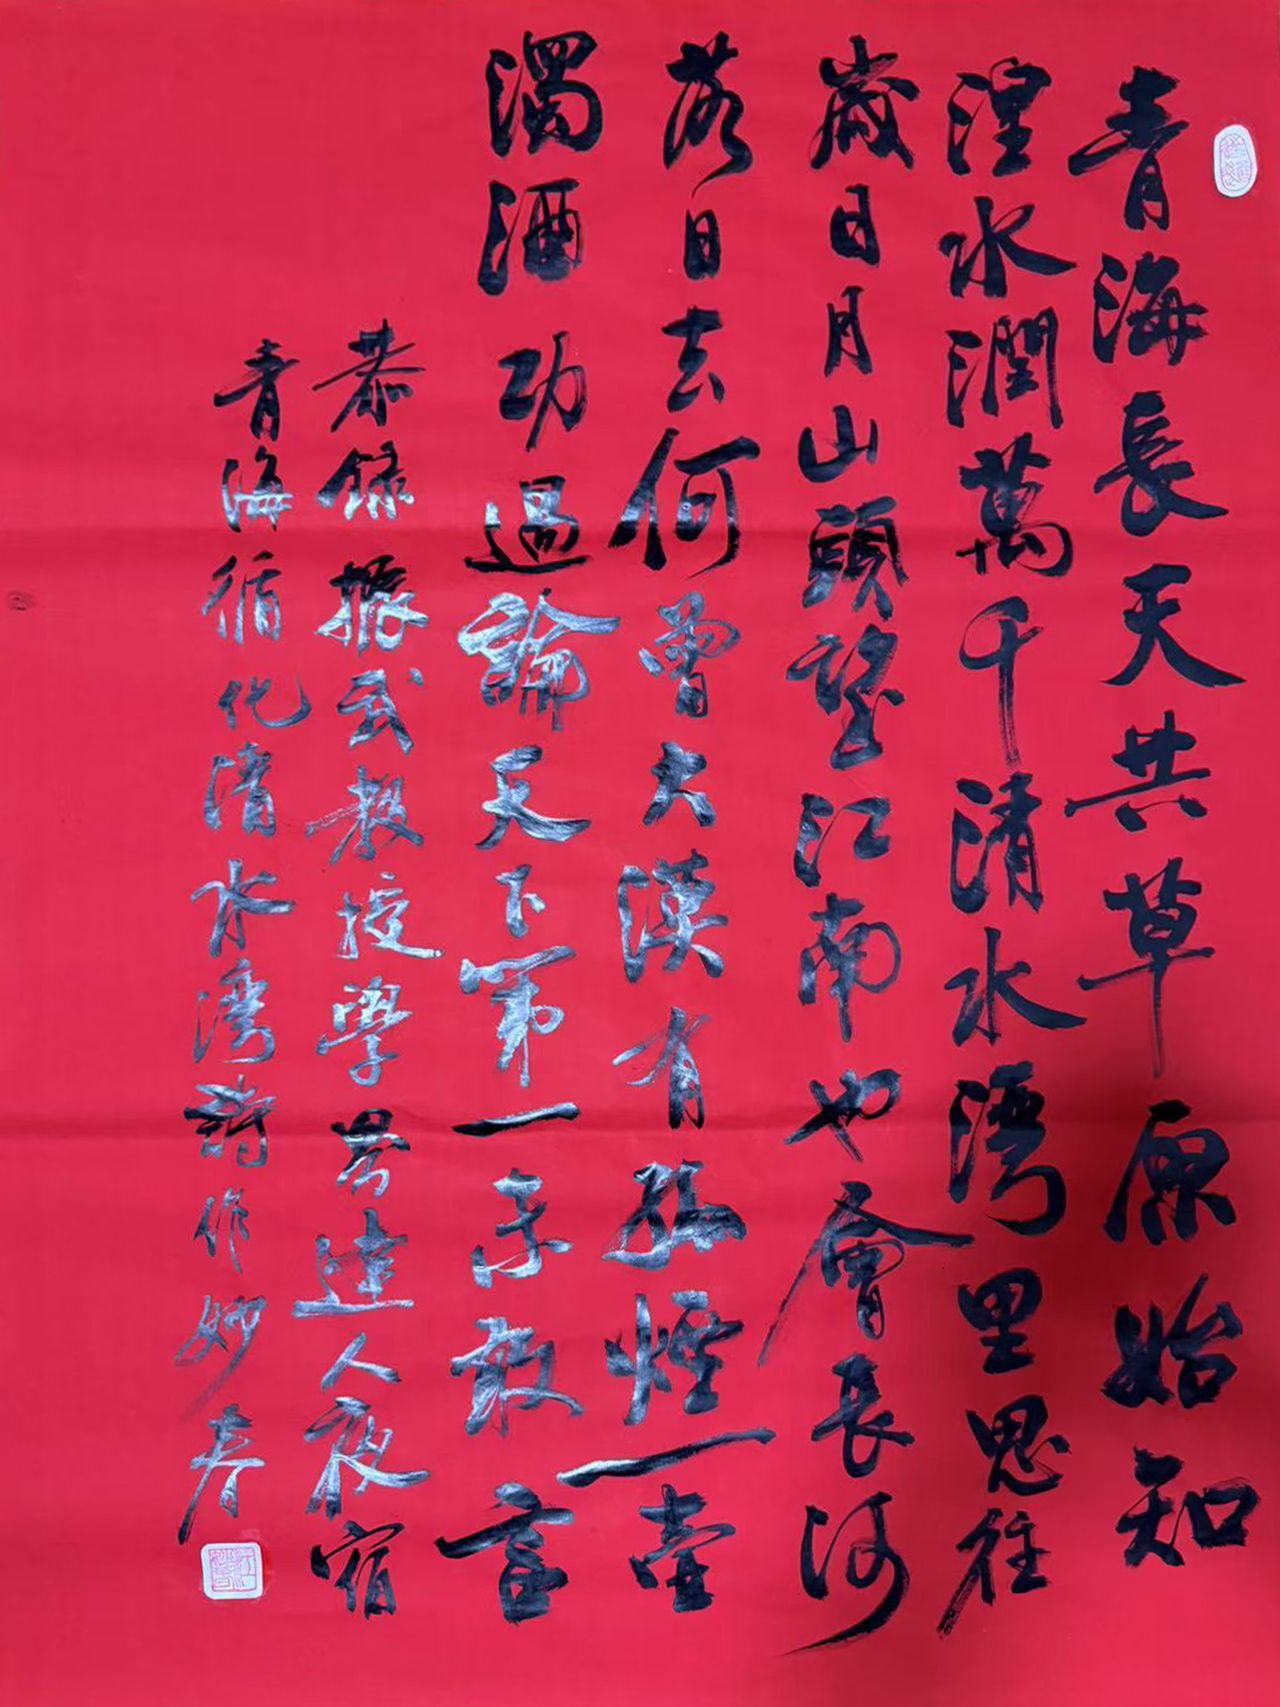 青海長天共草原始知
湟水潤萬千清水湾里思往
歲日月山頭望江南也會長河
落日去何曾大漠有孤煙一壶
濁酒功過論天下第一未敢言
恭録振武教授學苦達人夜宿
青海循化清水湾詩作妙春